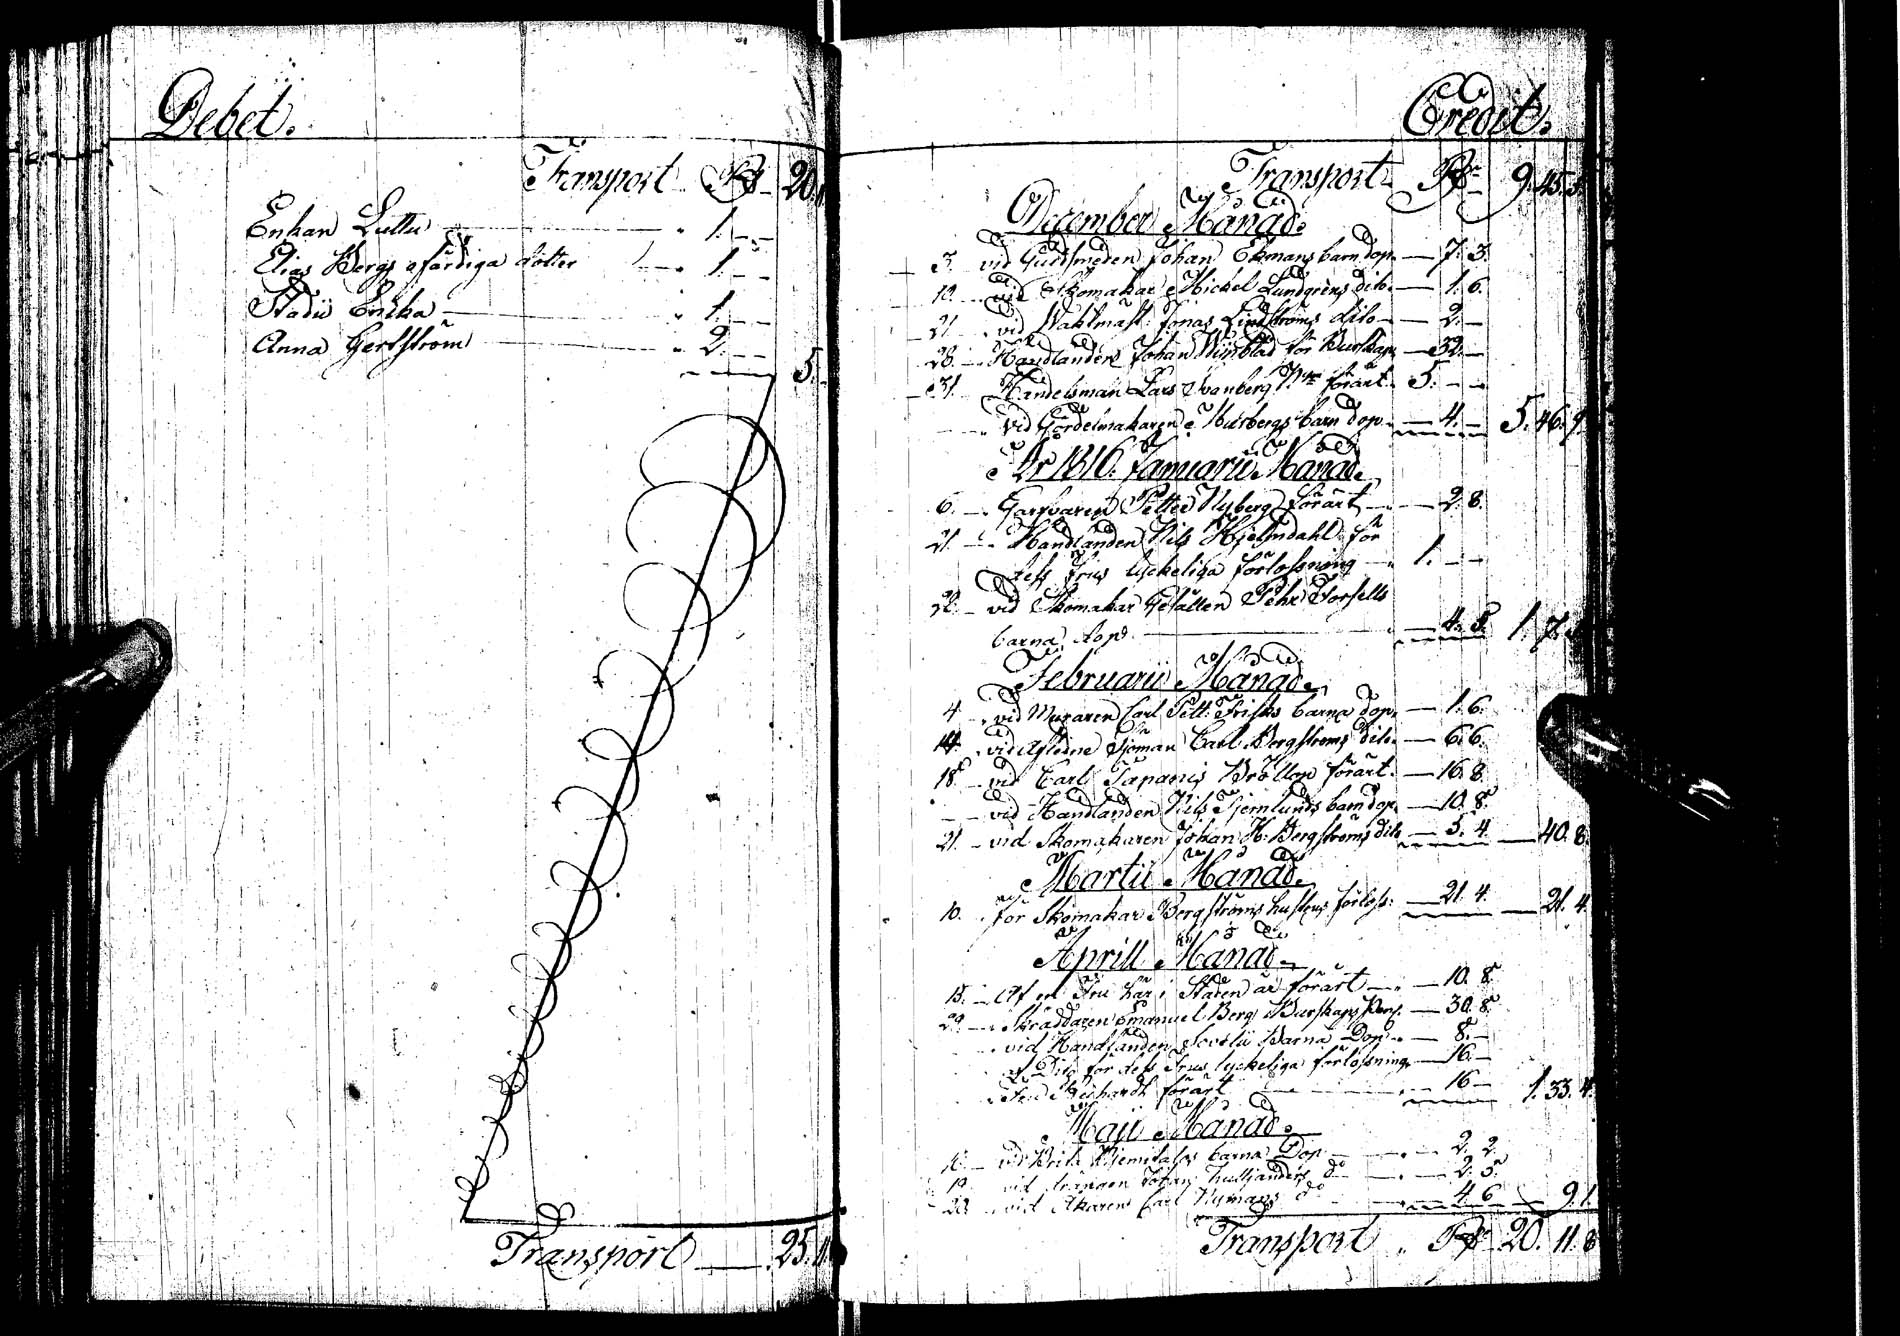 Debet.
Transport Rd 20.11
Enkan Luttu 1. - -
Elias Bergs ofärdiga dotter 1. - -
Stadii Enka 1. - -
Anna Gertström 2. - -
5. -
Transport 25.11
Credit.
Transport Rd 9.45.5
December Månad.
3. vid Guldsmeden Johan Ekmans barndop. 7. 3.
10. vid Skomakar Michel Lundgrens dito. 1. 6.
21. vid Wahtmäst. Jonas Lindströms dito 2. -
28. Handlanden Johan Winblad för Burskap 32. -
31. Handelsman Lars Svanberg förärt. 5. - -
vid Gördelmakaren Husbergs barndop. 4. - 5. 46. 9
År 1816. Januarii Månad.
6. Garfvaren Petter Nyberg förärt 2. 8.
21. Handlanden Nils Hjelmdahl för
dess Frus lyckeliga förlossning 1. - -
22. vid Skomakar Gesällen Pehr Forsells
barna dop. 4. 5. 1. 7.
Februarii Månad.
4. vid Muraren Carl Pett. Frisks barna dop. 1. 6.
14. vid Afledne Sjöman Carl Bergströms dito. 6. 6.
18. vid Carl Tapanis Bröllop förärt. 16. 8.
vid Handlanden Nils Tjernlunds barndop 10. 8.
21. vid Skomakaren Johan H. Bergströms dito 5. 4. 40. 8.
Martii Månad.
10. för Skomakar Bergströms hustrus förloss: 21. 4. 21. 4.
Aprill Månad.
15. Af en Fru här i Staden är förärt 10. 8.
29. Skräddaren Emanuel Berg i Burskaps Peng. 30. 8.
vid Handlanden Barna Dop 8. -
af Dito för dess Frus lyckeliga förlossning 16. -
förärt 16 - 1. 33. 4.
Maji Månad.
vid Brita barna Dop 2. 2.
19. vid Johan do 2. 5.
28. vid Åkaren Carl Nymans do 4. 6 9. 1.
Transport Rd 20. 11. 8